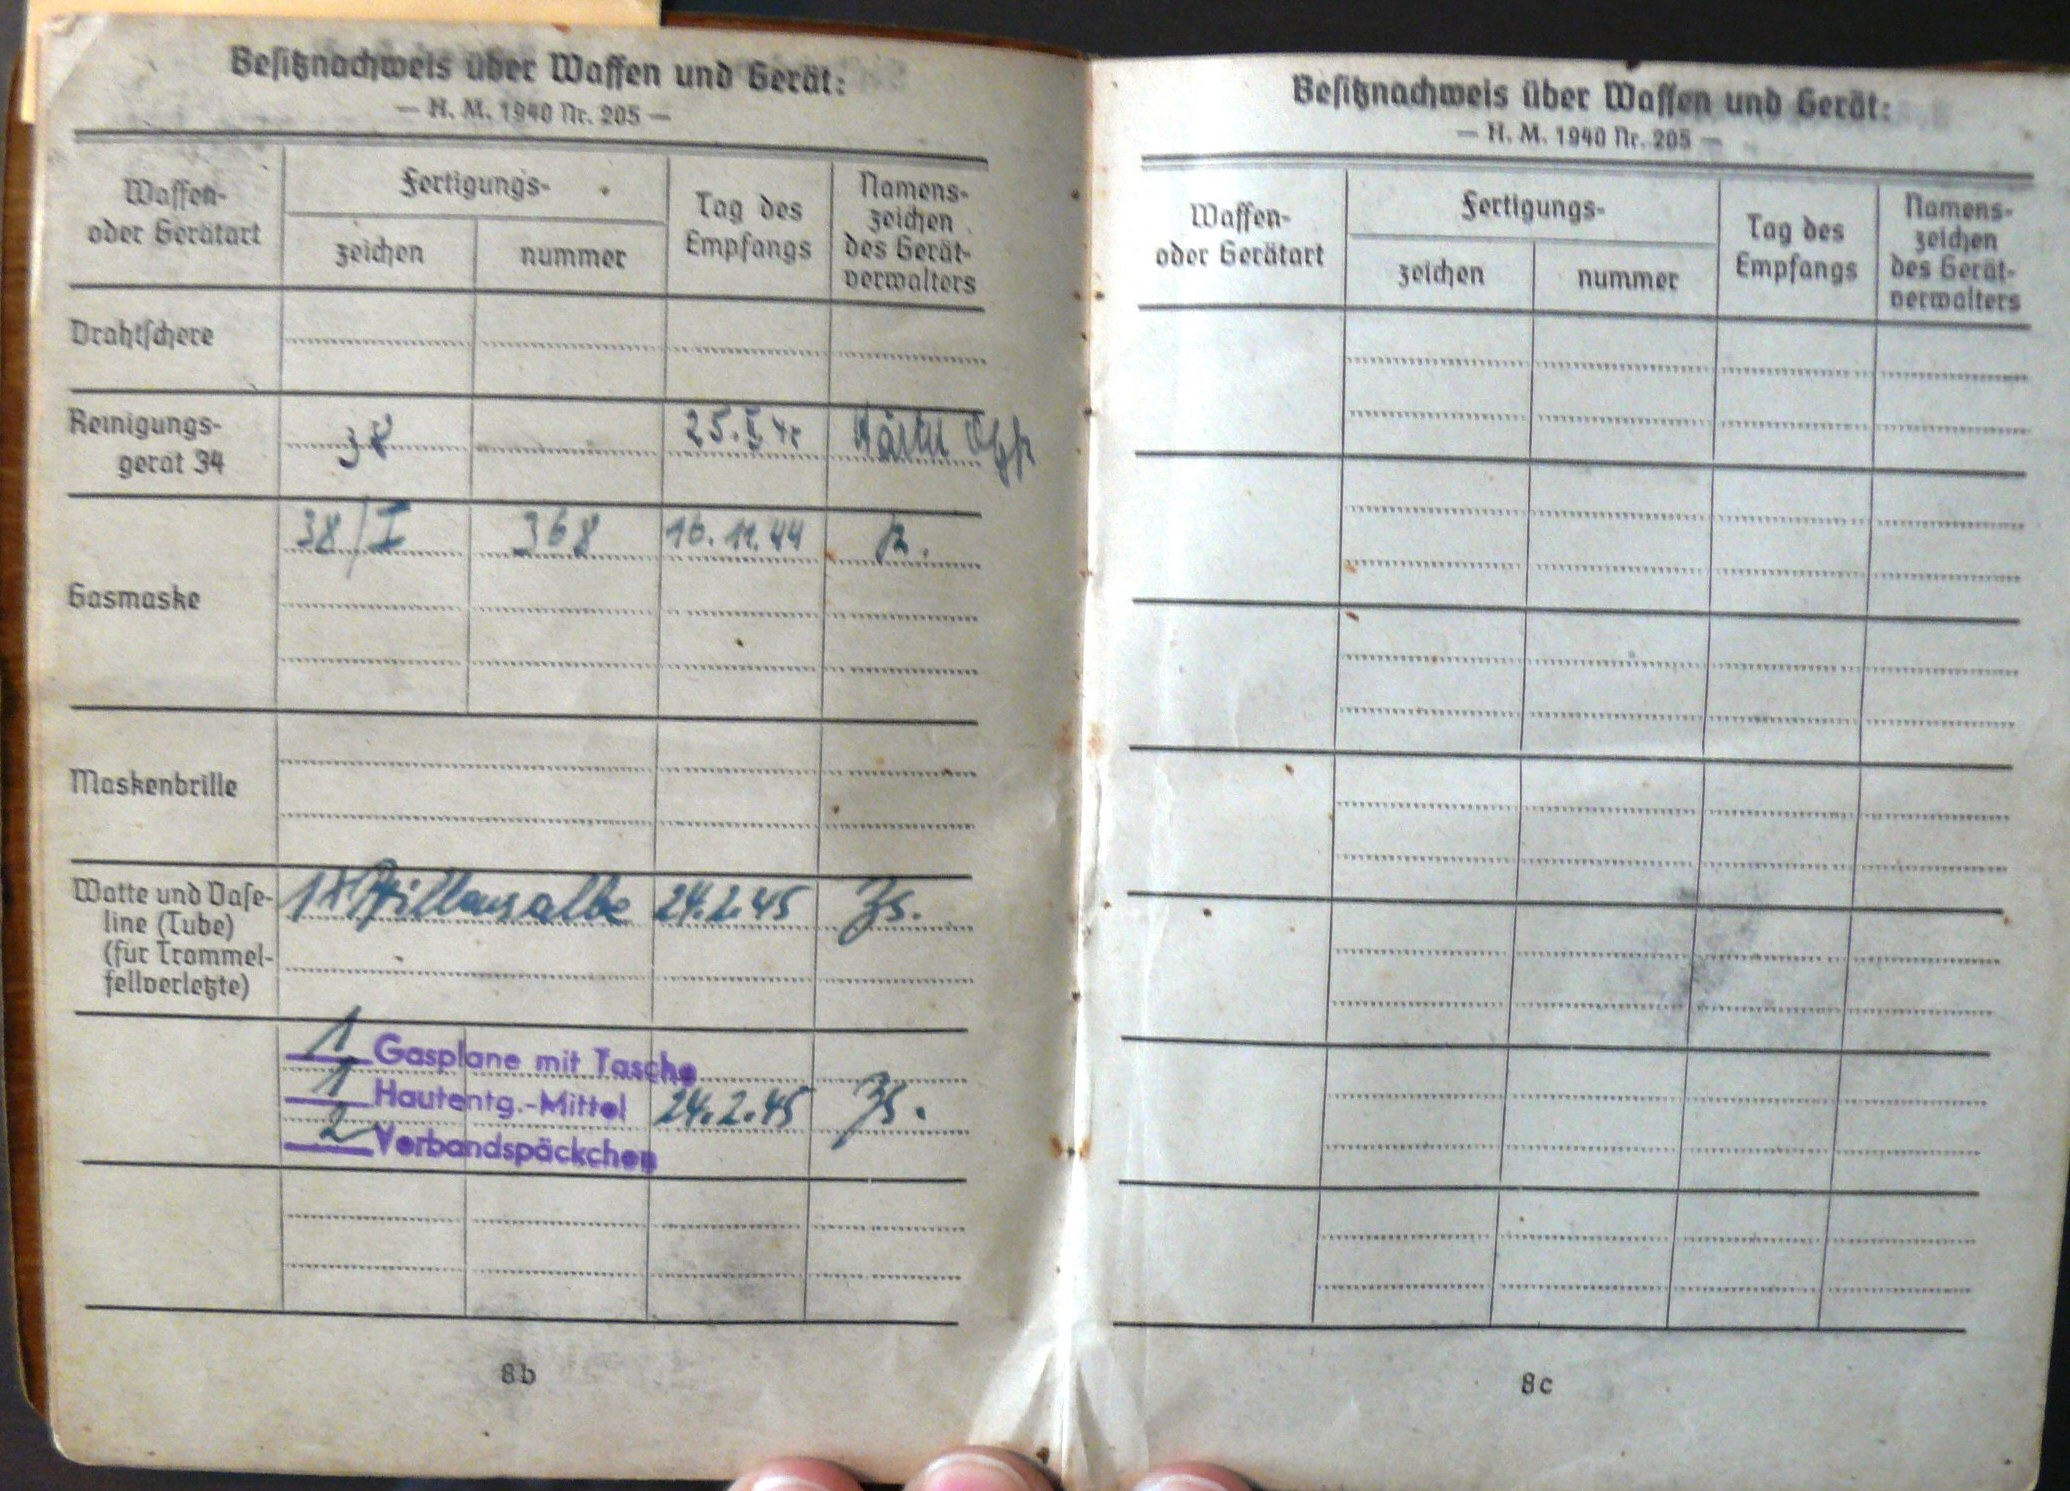 Besitznachweis über Waffen und Gerät:
— H. M. 1940 Nr. 205 —
Waffen-
oder Gerätart
Fertigungs-
zeichen
nummer
Tag des
Empfangs
Namens-
zeichen
des Gerät-
verwalters
Drahtschere
Reinigungs-
gerät 34
25.
Gasmaske
38/I 368 16.11.44 R.
Maskenbrille
Watte und Vase-
line (Tube)
(für Trommel-
fellverletzte)
24.2.45
1 Gasplane mit Tasche
1 Hautentg.-Mittel 24.2.45
2 Verbandspäckchen
8b
Besitznachweis über Waffen und Gerät:
— H. M. 1940 Nr. 205 —
Waffen-
oder Gerätart
Fertigungs-
zeichen
nummer
Tag des
Empfangs
Namens-
zeichen
des Gerät-
verwalters
8c